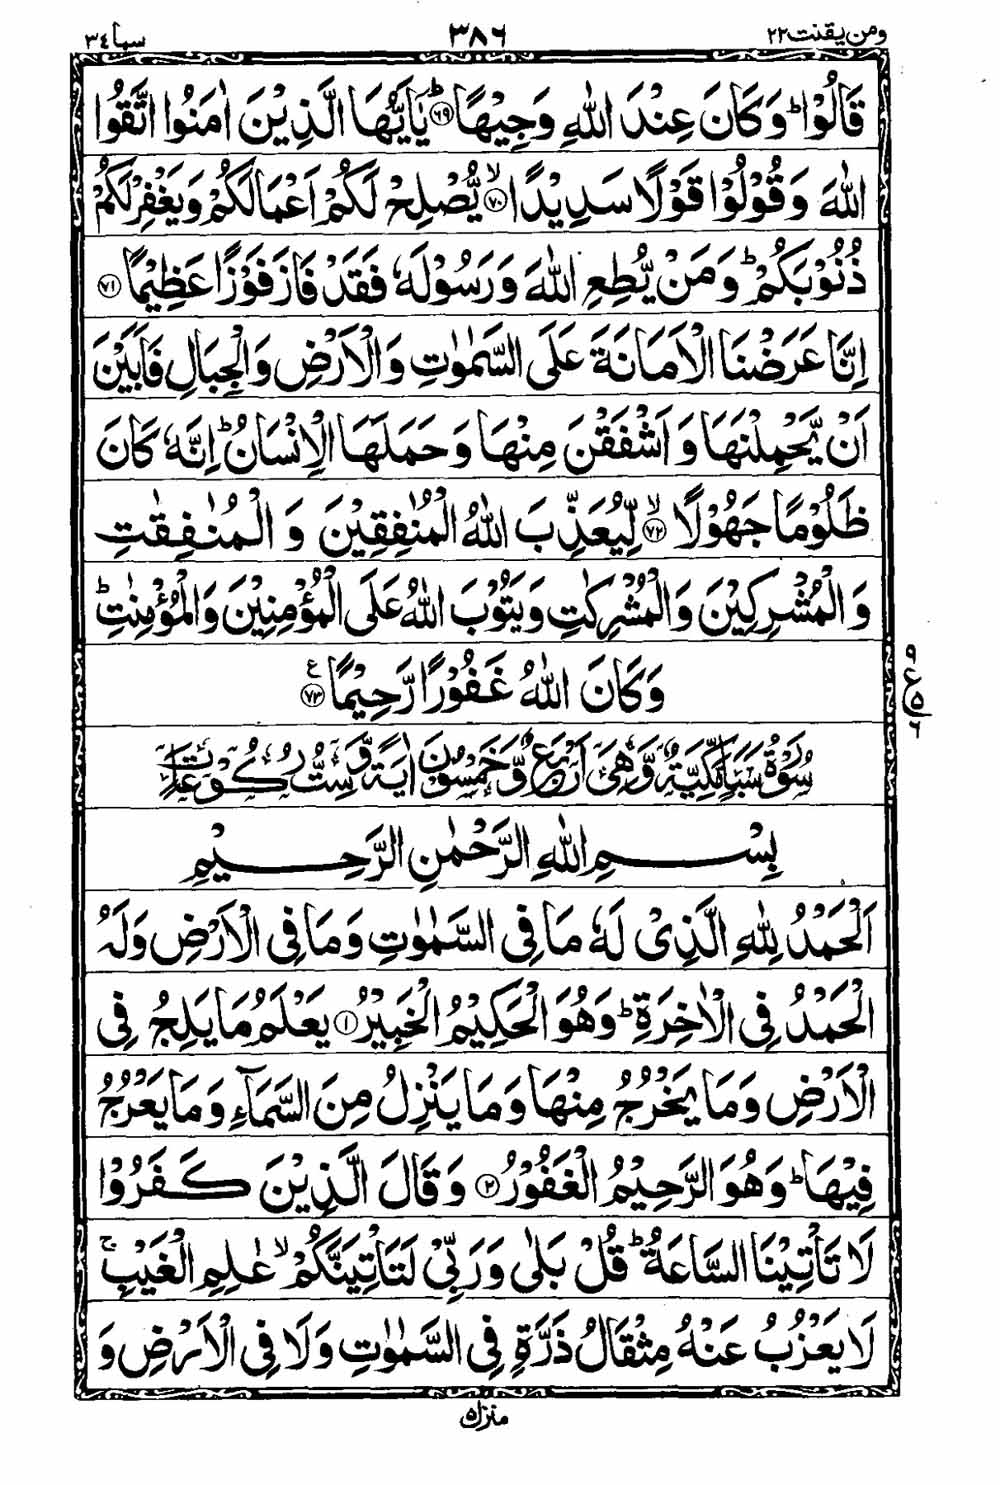 ومن يقنت ٢٢ ٣٨٦ سبا ٣٤
قَالُوْا ؕ وَ كَانَ عِنْدَ اللّٰهِ وَجِيْهًا ؕ ۝۶۹ يٰۤاَيُّهَا الَّذِيْنَ اٰمَنُوا اتَّقُوا
اللّٰهَ وَ قُوْلُوْا قَوْلًا سَدِيْدًا ۙ ۝۷۰ يُّصْلِحْ لَكُمْ اَعْمَالَكُمْ وَ يَغْفِرْ لَكُمْ
ذُنُوْبَكُمْ ؕ وَ مَنْ يُّطِعِ اللّٰهَ وَ رَسُوْلَهٗ فَقَدْ فَازَ فَوْزًا عَظِيْمًا ۝۷۱
اِنَّا عَرَضْنَا الْاَمَانَةَ عَلَى السَّمٰوٰتِ وَ الْاَرْضِ وَ الْجِبَالِ فَاَبَيْنَ
اَنْ يَّحْمِلْنَهَا وَ اَشْفَقْنَ مِنْهَا وَ حَمَلَهَا الْاِنْسَانُ ؕ اِنَّهٗ كَانَ
ظَلُوْمًا جَهُوْلًا ۙ ۝۷۲ لِّيُعَذِّبَ اللّٰهُ الْمُنٰفِقِيْنَ وَ الْمُنٰفِقٰتِ
وَ الْمُشْرِكِيْنَ وَ الْمُشْرِكٰتِ وَ يَتُوْبَ اللّٰهُ عَلَى الْمُؤْمِنِيْنَ وَ الْمُؤْمِنٰتِ ؕ
وَ كَانَ اللّٰهُ غَفُوْرًا رَّحِيْمًا ۝۷۳ ع
٩ ع ٥ ٦
سُوْرَةُ سَبَاٍ مَّكِّيَّةٌ وَّهِيَ اَرْبَعٌ وَّخَمْسُوْنَ اٰيَةً وَّسِتُّ رُكُوْعَاتٍ
بِسْمِ اللّٰهِ الرَّحْمٰنِ الرَّحِيْمِ
اَلْحَمْدُ لِلّٰهِ الَّذِيْ لَهٗ مَا فِي السَّمٰوٰتِ وَ مَا فِي الْاَرْضِ وَ لَهُ
الْحَمْدُ فِي الْاٰخِرَةِ ؕ وَ هُوَ الْحَكِيْمُ الْخَبِيْرُ ۝۱ يَعْلَمُ مَا يَلِجُ فِي
الْاَرْضِ وَ مَا يَخْرُجُ مِنْهَا وَ مَا يَنْزِلُ مِنَ السَّمَآءِ وَ مَا يَعْرُجُ
فِيْهَا ؕ وَ هُوَ الرَّحِيْمُ الْغَفُوْرُ ۝۲ وَ قَالَ الَّذِيْنَ كَفَرُوْا
لَا تَاْتِيْنَا السَّاعَةُ ؕ قُلْ بَلٰى وَ رَبِّيْ لَتَاْتِيَنَّكُمْ ۙ عٰلِمِ الْغَيْبِ ۚ
لَا يَعْزُبُ عَنْهُ مِثْقَالُ ذَرَّةٍ فِي السَّمٰوٰتِ وَ لَا فِي الْاَرْضِ وَ
منزل ٥